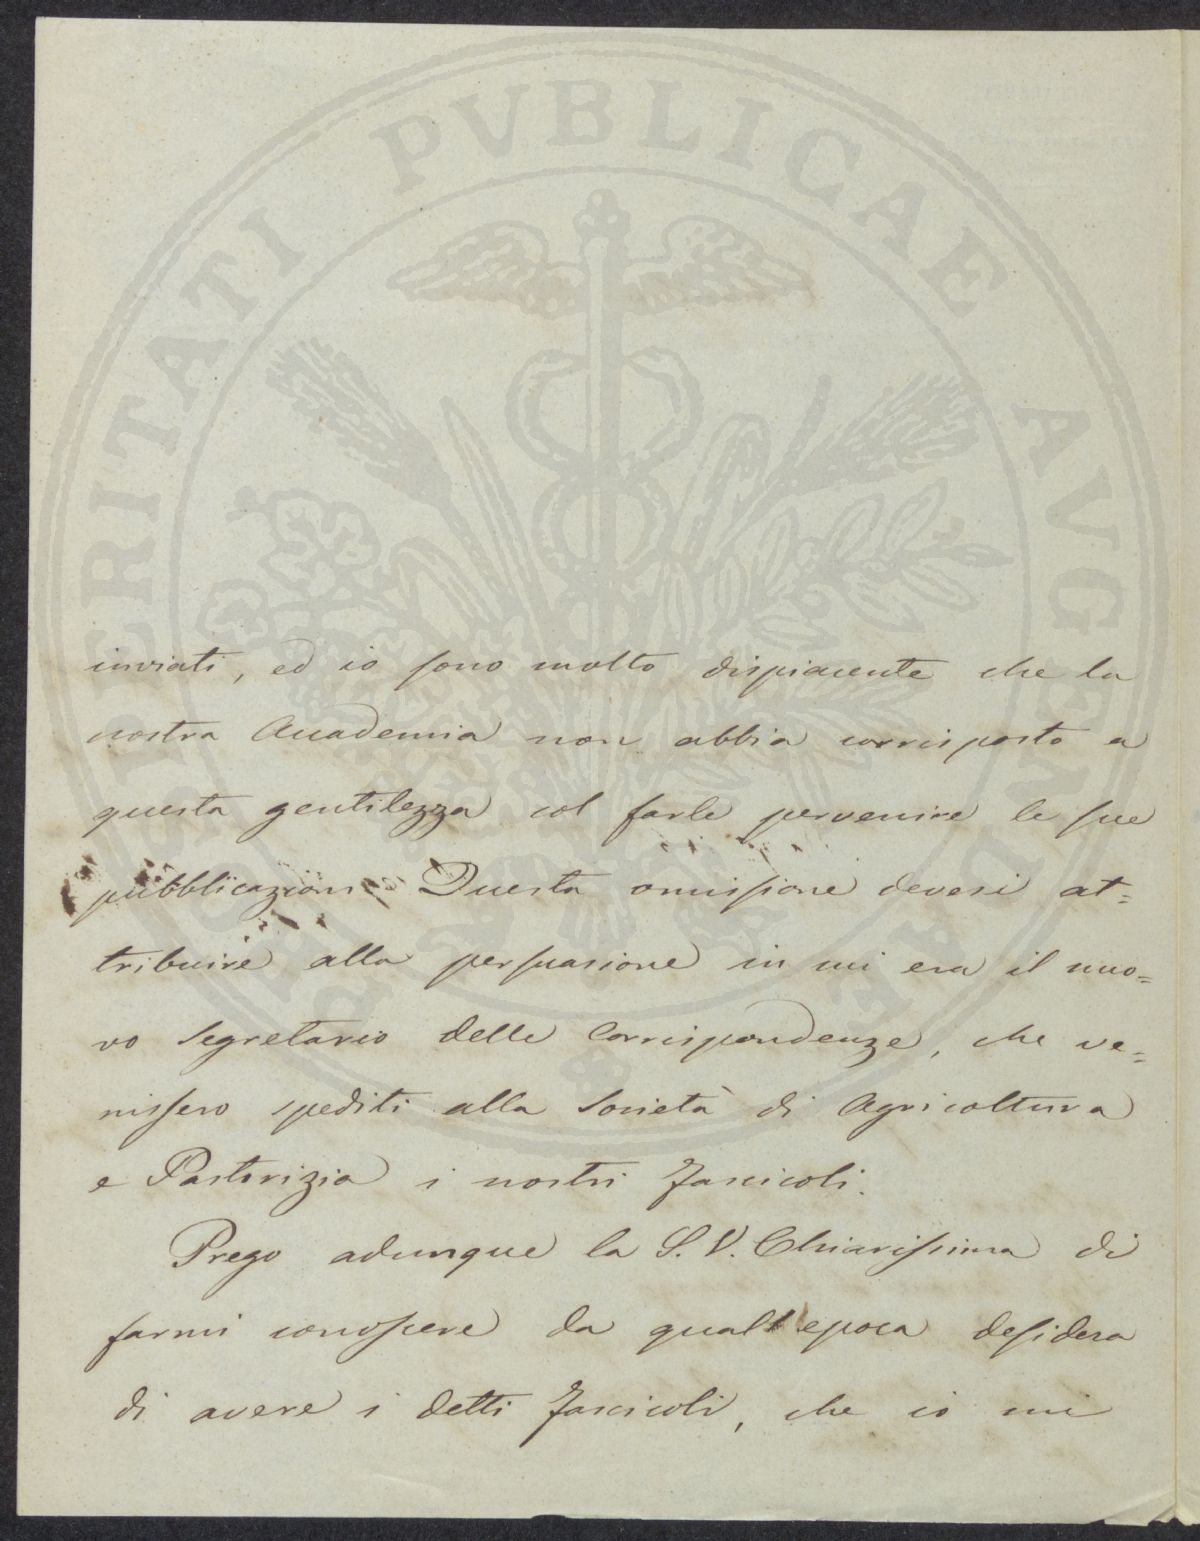 PROSPERITATI PVBLICAE AVGENDAE
inviati, ed io sono molto dispiacente che la
nostra Accademia non abbia corrisposto a
questa gentilezza col farle pervenire le sue
pubblicazioni. Questa omissione devesi at=
tribuire alla persuasione in cui era il nuo=
vo Segretario delle Corrispondenze, che ve=
nissero spediti alla Società di Agricoltura
e Pastorizia i nostri Fascicoli.
Prego adunque la S. V. Chiarissima di
farmi conoscere da qual epoca desidera
di avere i detti Fascicoli, che io mi